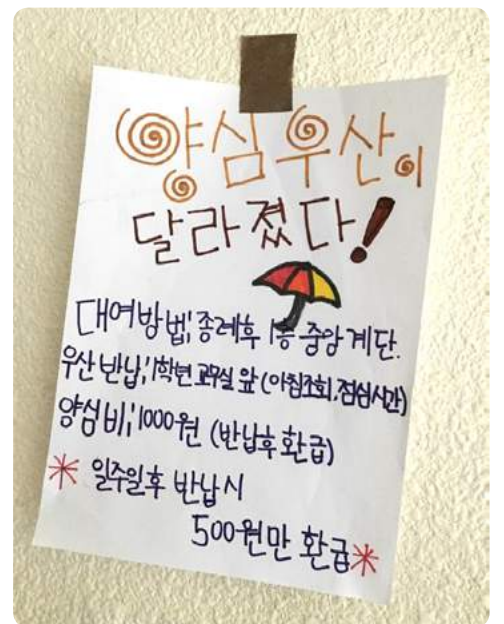 양심우산이
달라졌다!
대여방법; 종례후 1층 중앙 계단.
우산 반납; 1학년 교무실 앞 (아침조회, 점심시간)
양심비; 1000원 (반납후 환급)
* 일주일후 반납시
500원만 환급 *